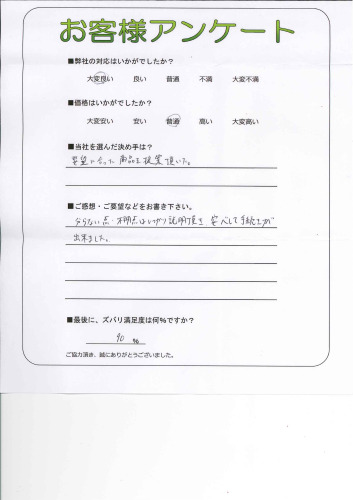 お客様アンケート
■弊社の対応はいかがでしたか？
大変良い 良い 普通 不満 大変不満
■価格はいかがでしたか？
大変安い 安い 普通 高い 大変高い
■当社を選んだ決め手は？
要望に合った商品を提案頂いた。
■ご感想・ご要望などをお書き下さい。
分らない点・不明点はしっかり説明頂き 安心して手続きが
出来ました。
■最後に、ズバリ満足度は何％ですか？
90 %
ご協力頂き、誠にありがとうございました。